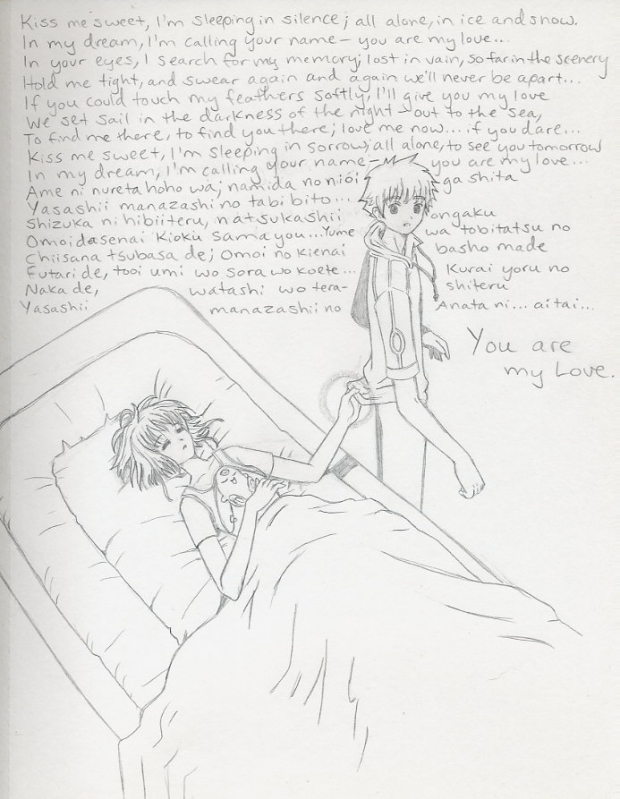 Kiss me sweet, I'm sleeping in silence; all alone, in ice and snow.
In my dream, I'm calling your name - you are my love...
In your eyes, I search for my memory; lost in vain, so far in the scenery
Hold me tight, and swear again and again we'll never be apart...
If you could touch my feathers softly, I'll give you my love
We set sail in the darkness of the night - out to the sea,
To find me there, to find you there; love me now.... if you dare...
Kiss me sweet, I'm sleeping in sorrow; all alone, to see you tomorrow
In my dream, I'm calling your name - you are my love...
Ame ni nureta hoho wa; namida no nioi ga shita
Yasashii manazashi no tabibito...
Shizuka ni hibiiteru, natsukashii ongaku
Omoidasenai kioku samayou... Yume wa tobitatsu no
Chiisana tsubasa de; Omoi no kienai basho made
Futari de, tooi umi wo sora wo koete... Kurai yoru no
Naka de, watashi wo tera-shiteru
Yasashii manazashii no Anata ni... aitai...
You are
my Love.